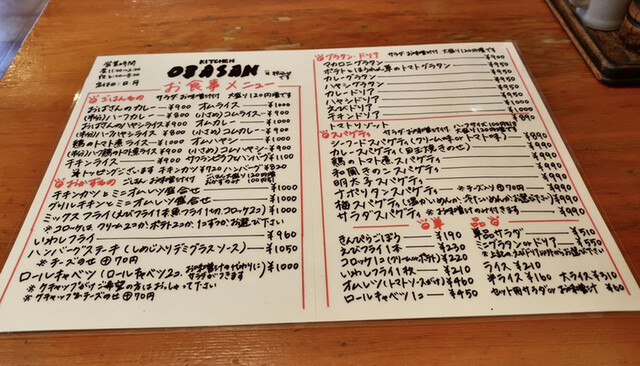 営業時間
KITCHEN
OBASAN
お食事メニュー
ごはんもの サラダ お味噌汁付 大盛り120円増です
おばさんのカレー ¥900 オムライス ¥1000
ハーフカレー ¥800 (小さめ)コムライス ¥900
おばさんのハヤシライス ¥900 オムカレー ¥1000
ハーフハヤシライス ¥800 (小さめ)コムカレー ¥900
鶏のトマト煮ライス ¥900 オムハヤシ ¥1000
ハーフ鶏のトマト煮ライス ¥800 (小さめ)コムハヤシ ¥900
チキンライス ¥900 サフランピラフとハンバーグ ¥1100
★トッピングございます チキンカツ ¥720 ハンバーグ ¥820
おかずもの ごはん お味噌汁付
チキンカツとミニオムレツ盛合せ ¥1000
グリルチキンとミニオムレツ盛合せ ¥1000
ミックスフライ(えびフライ1本 魚フライ1切 コロッケ2コ) ¥1000
※コロッケは、クリーム2コか ポテト2コか 1コずつか お選び下さい
いわしフライ ¥960
ハンバグステーキ(しめじ入りデミグラスソース) ¥1050
※チーズのせ ㊉70円
ロールキャベツ(ロールキャベツ2コ お味噌汁の代わりにサラダができます) ¥1000
※ケチャップがけご希望の方はおっしゃって下さい
※ケチャップ&チーズのせ ㊉70円
グラタン・ドリア サラダ・お味噌汁付 大盛り120円増です
マカロニグラタン ¥950
ポテトとほうれん草のトマトグラタン ¥950
カレーグラタン ¥950
ハヤシグラタン ¥950
カレードリア ¥950
ハヤシドリア ¥950
えびドリア
チキンドリア
トマトリゾット ¥890
スパゲティ サラダ・お味噌汁付 大盛り120円増です
シーフードスパゲティ(クリーム味 or トマト味) ¥990
カレースパゲティ(目玉焼きのせ) ¥890
鶏のトマト煮スパゲティ ¥890
和風きのこスパゲティ ¥890
明太子スパゲティ ¥890
ナポリタンスパゲティ ※チーズのせ㊉70円 ¥890
梅スパゲティ ¥890
サラダスパゲティ ※お味噌汁のみ付きます ¥890
単品
きんぴらごぼう ¥190
えびフライ1本 ¥230
コロッケ1コ(クリームorポテト) ¥220
いわしフライ1枚 ¥210
オムレツ(トマトソースがけ) ¥460
ロールキャベツ1コ ¥450
単品サラダ ¥510
ミニグラタン or ドリア ¥550
ライス ¥210
半ライス ¥160 大ライス ¥310
セット用サラダ or お味噌汁 ¥60